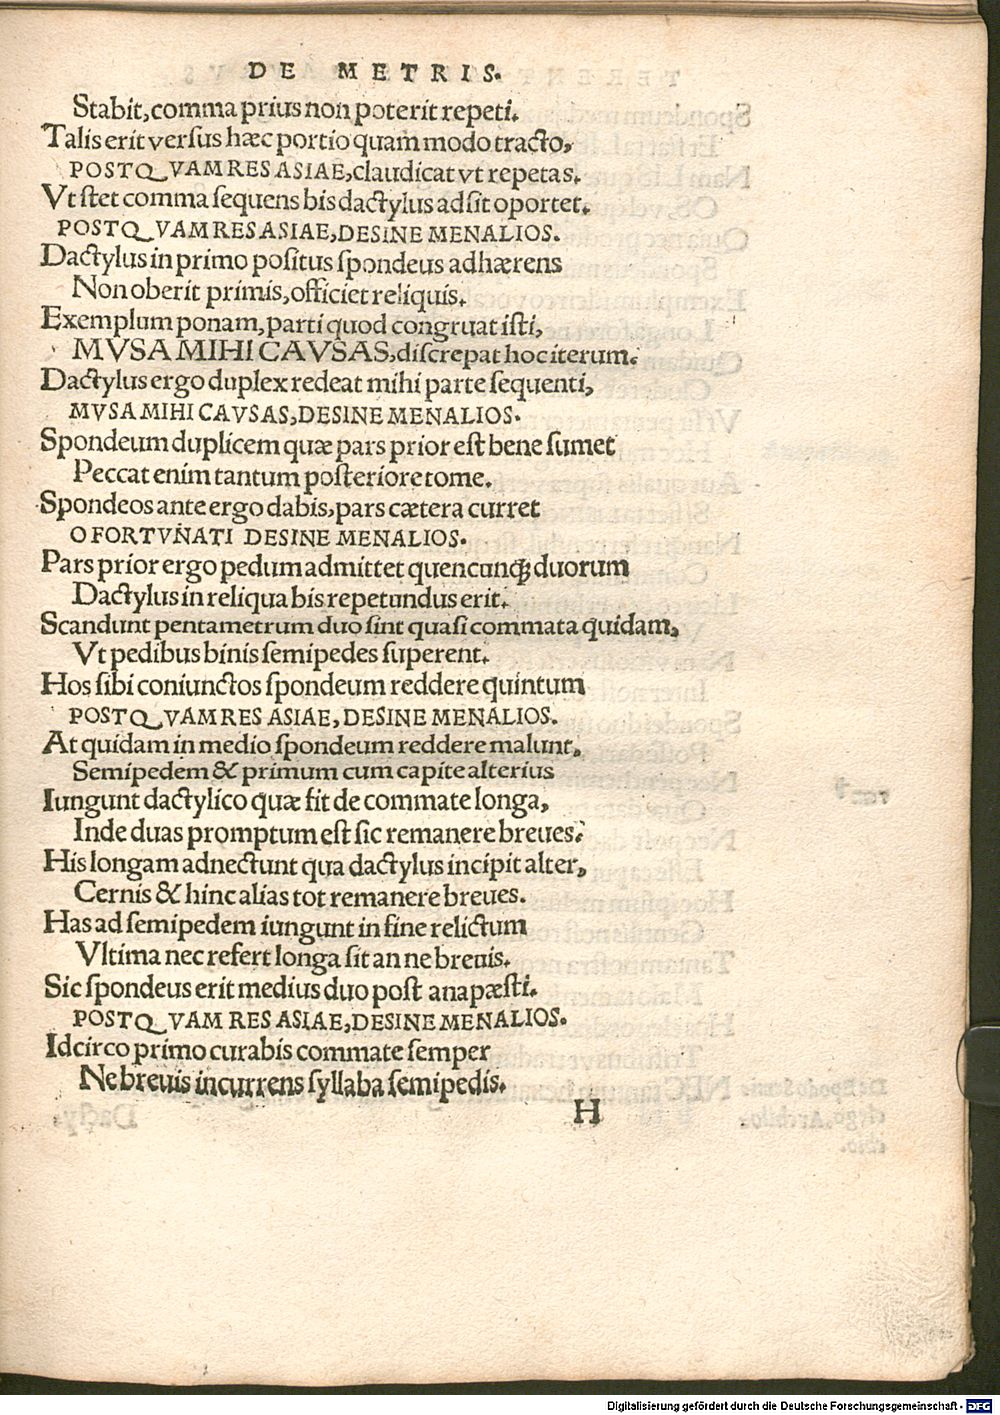 DE METRIS.
Stabit, comma prius non poterit repeti.
Talis erit versus hæc portio quam modo tracto,
POSTQVAM RES ASIAE, claudicat vt repetas.
Vt stet comma sequens bis dactylus adsit oportet.
POSTQVAM RES ASIAE, DESINE MENALIOS.
Dactylus in primo positus spondeus adhærens
Non oberit primis, officiet reliquis.
Exemplum ponam, parti quod congruat isti,
MVSA MIHI CAVSAS, discrepat hoc iterum.
Dactylus ergo duplex redeat mihi parte sequenti,
MVSA MIHI CAVSAS, DESINE MENALIOS.
Spondeum duplicem quæ pars prior est bene sumet
Peccat enim tantum posteriore tome.
Spondeos ante ergo dabis, pars cætera curret
O FORTVNATI DESINE MENALIOS.
Pars prior ergo pedum admittet quencunqȝ duorum
Dactylus in reliqua bis repetundus erit.
Scandunt pentametrum duo sint quasi commata quidam,
Vt pedibus binis semipedes superent.
Hos sibi coniunctos spondeum reddere quintum
POSTQVAM RES ASIAE, DESINE MENALIOS.
At quidam in medio spondeum reddere malunt,
Semipedem & primum cum capite alterius
Iungunt dactylico quæ fit de commate longa,
Inde duas promptum est sic remanere breues:
His longam adnectunt qua dactylus incipit alter,
Cernis & hinc alias tot remanere breues.
Has ad semipedem iungunt in fine relictum
Vltima nec refert longa sit an ne breuis.
Sic spondeus erit medius duo post anapæsti.
POSTQVAM RES ASIAE, DESINE MENALIOS.
Idcirco primo curabis commate semper
Ne breuis incurrens syllaba semipedis.
H
Digitalisierung gefördert durch die Deutsche Forschungsgemeinschaft - DFG